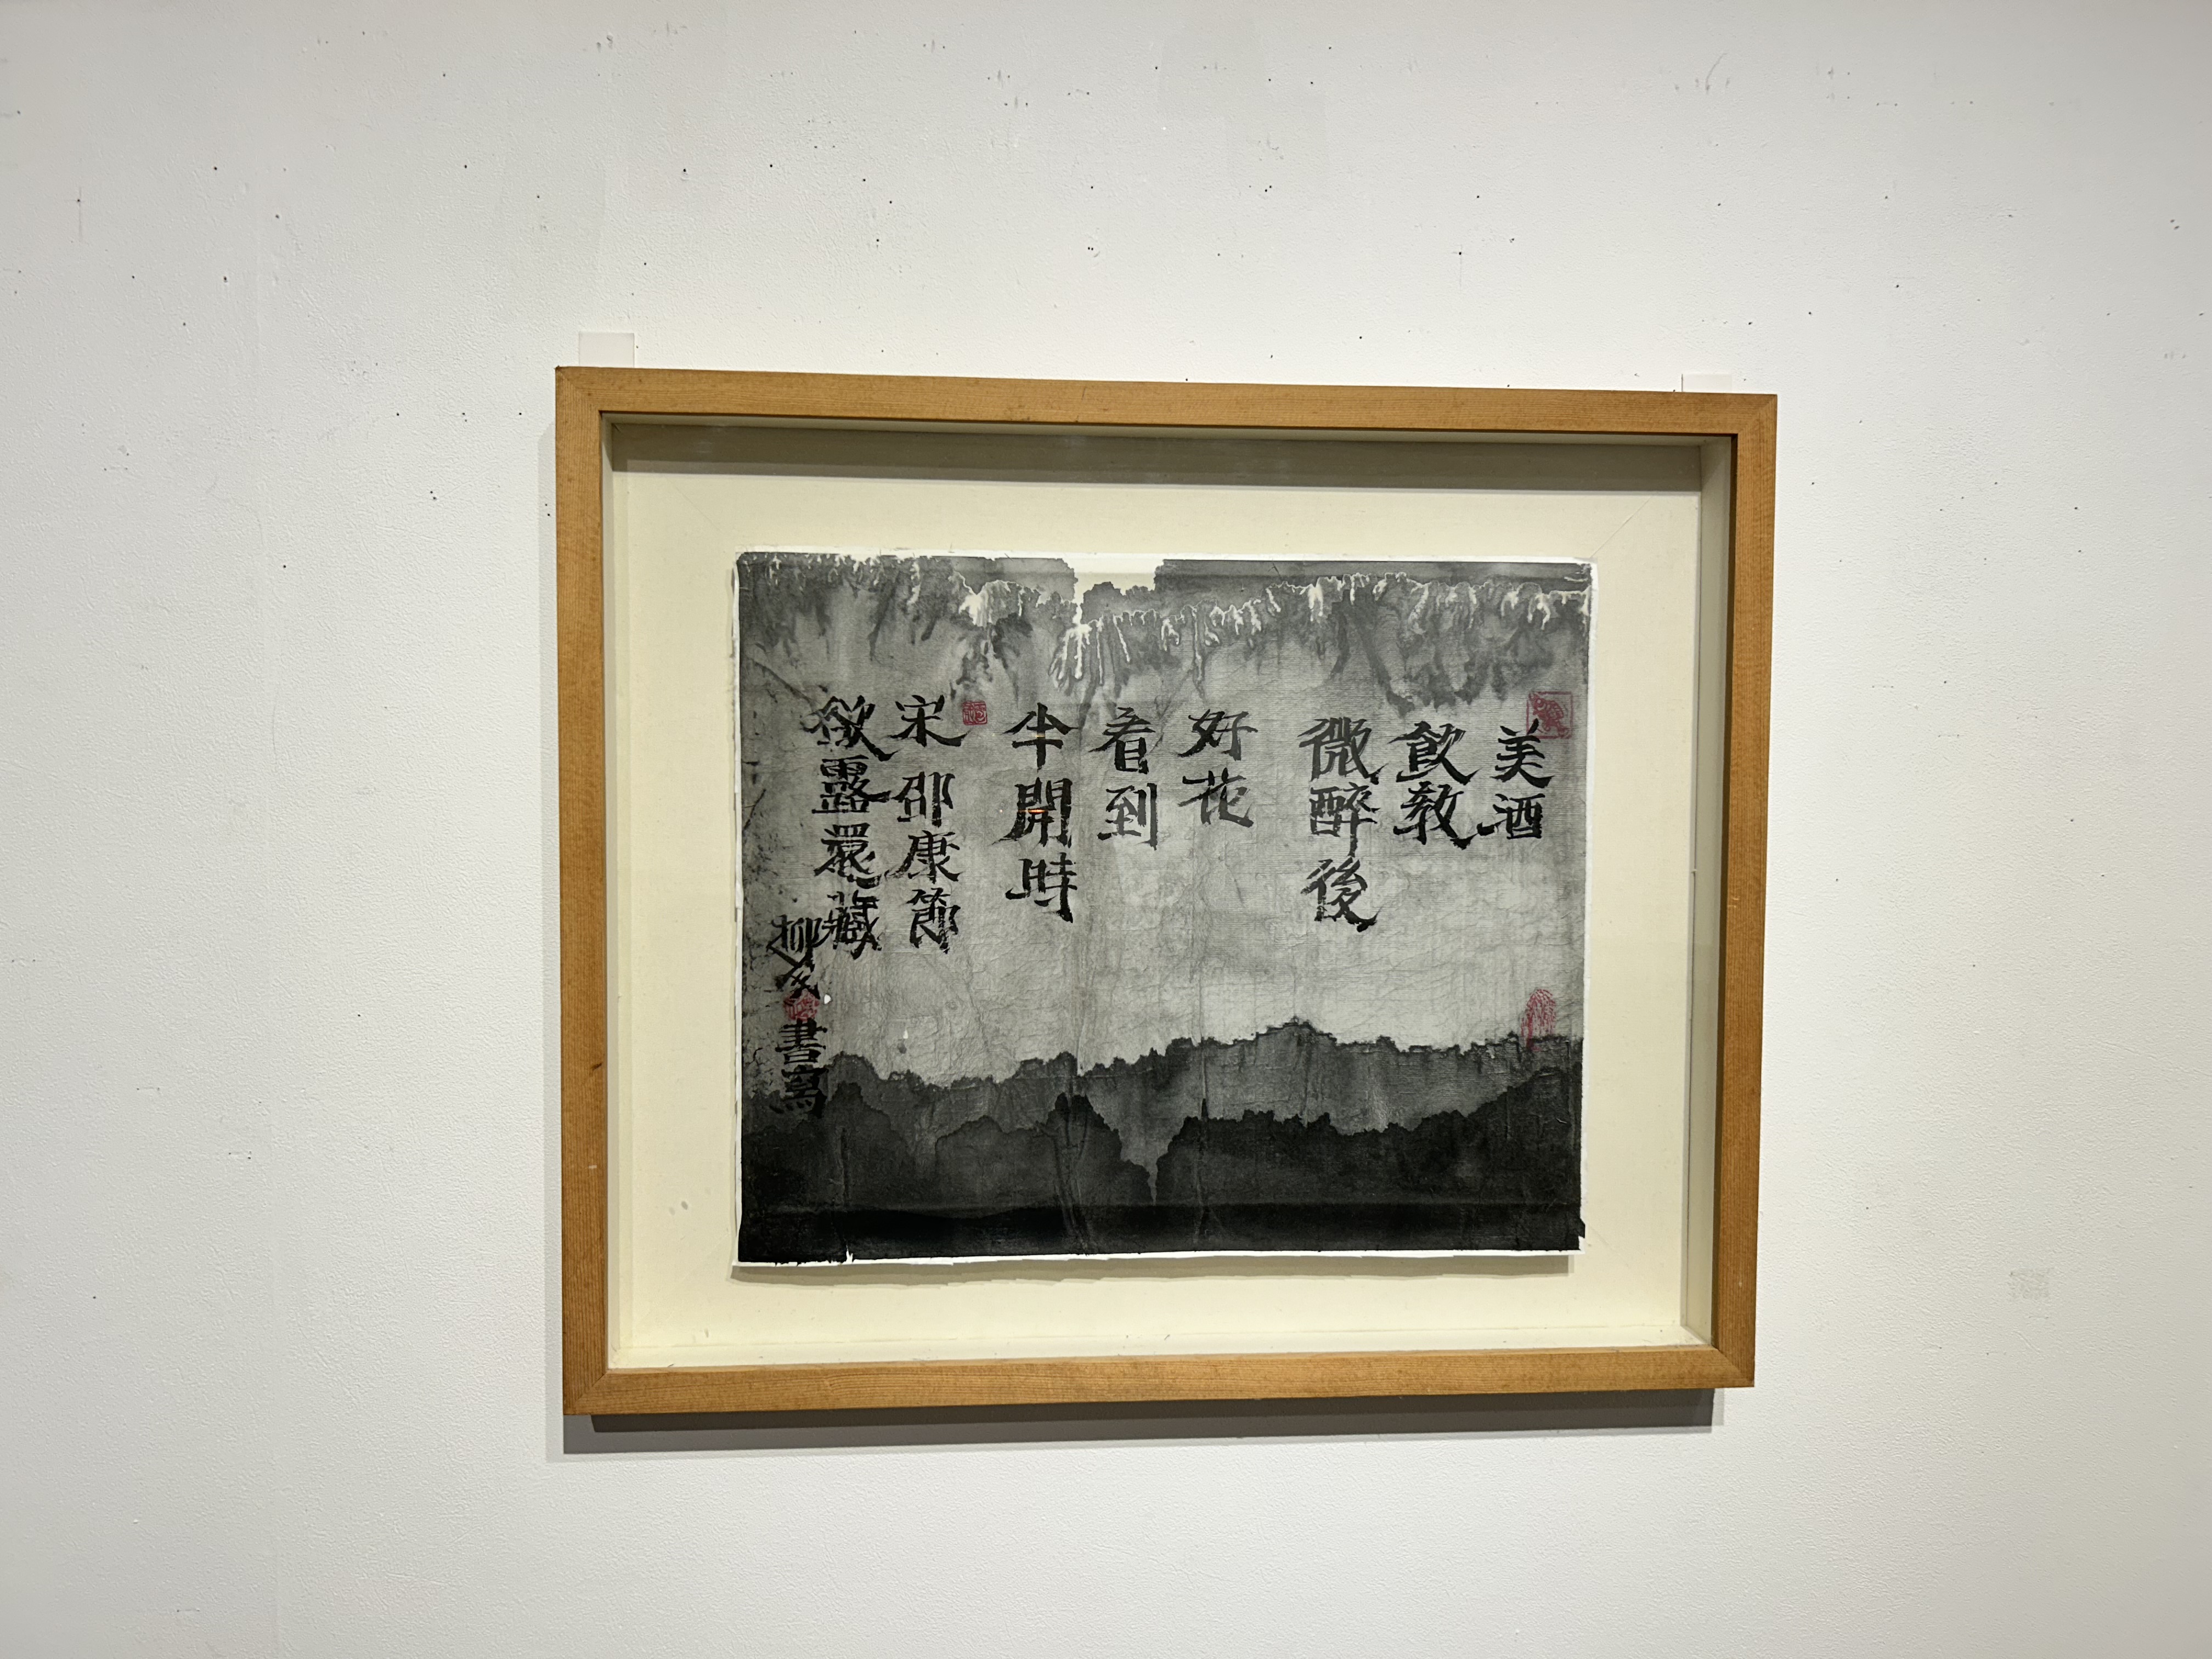 美酒
飲教
微醉後
好花
看到
半開時
宋邵康節
欲露還藏
柳
書寫